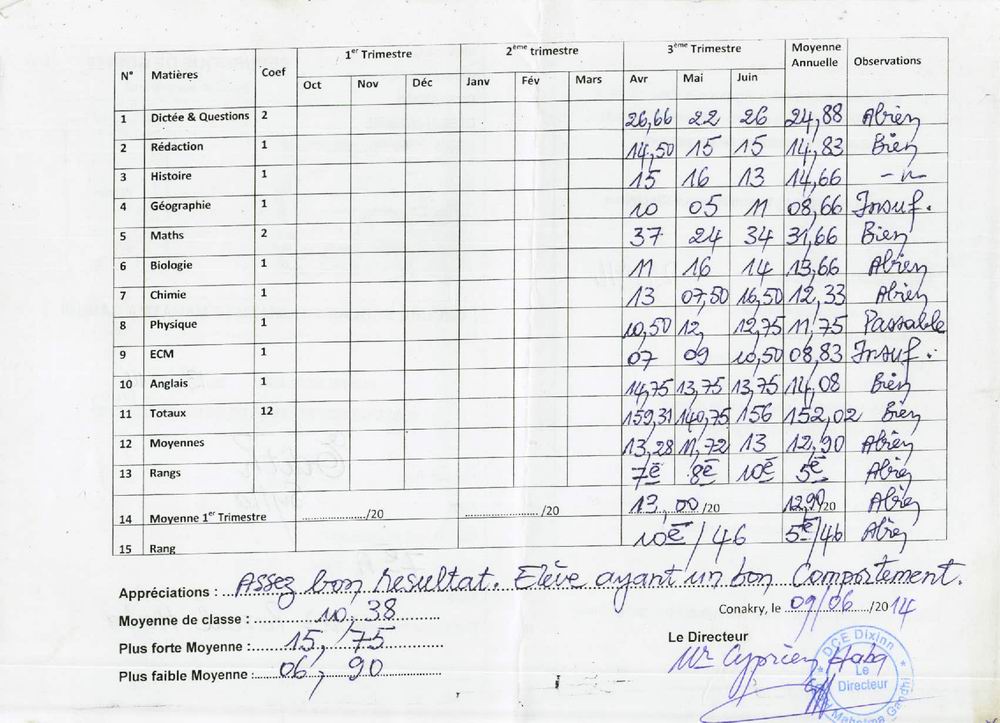 N° Matières Coef 1er Trimestre 2ème trimestre 3ème Trimestre Moyenne Annuelle Observations
Oct Nov Déc Janv Fév Mars Avr Mai Juin
1 Dictée & Questions 2 26,66 22 26 24,88 Abien
2 Rédaction 1 14,50 15 15 14,83 Bien
3 Histoire 1 15 16 13 14,66 -"-
4 Géographie 1 10 05 11 08,66 Insuf.
5 Maths 2 37 24 34 31,66 Bien
6 Biologie 1 11 16 14 13,66 Abien
7 Chimie 1 13 07,50 16,50 12,33 Abien
8 Physique 1 10,50 12, 12,75 11,75 Passable
9 ECM 1 07 09 10,50 08,83 Insuf.
10 Anglais 1 14,75 13,75 13,75 14,08 Bien
11 Totaux 12 159,31 140,75 156 152,02 Bien
12 Moyennes 13,28 11,72 13 12,90 Abien
13 Rangs 7e 8e 10e 5e Abien
14 Moyenne 1er Trimestre /20 /20 13,00 /20 12,90 /20 Abien
15 Rang 10e/46 5e/46 Abien
Appréciations : Assez bon résultat. Elève ayant un bon Comportement.
Moyenne de classe : 10,38
Conakry, le 09/06/2014
Plus forte Moyenne : 15,75
Le Directeur
Plus faible Moyenne : 06,90
Mr Cyprien Haba
DCE Dixinn
Le
Directeur
Mahatma Gandhi